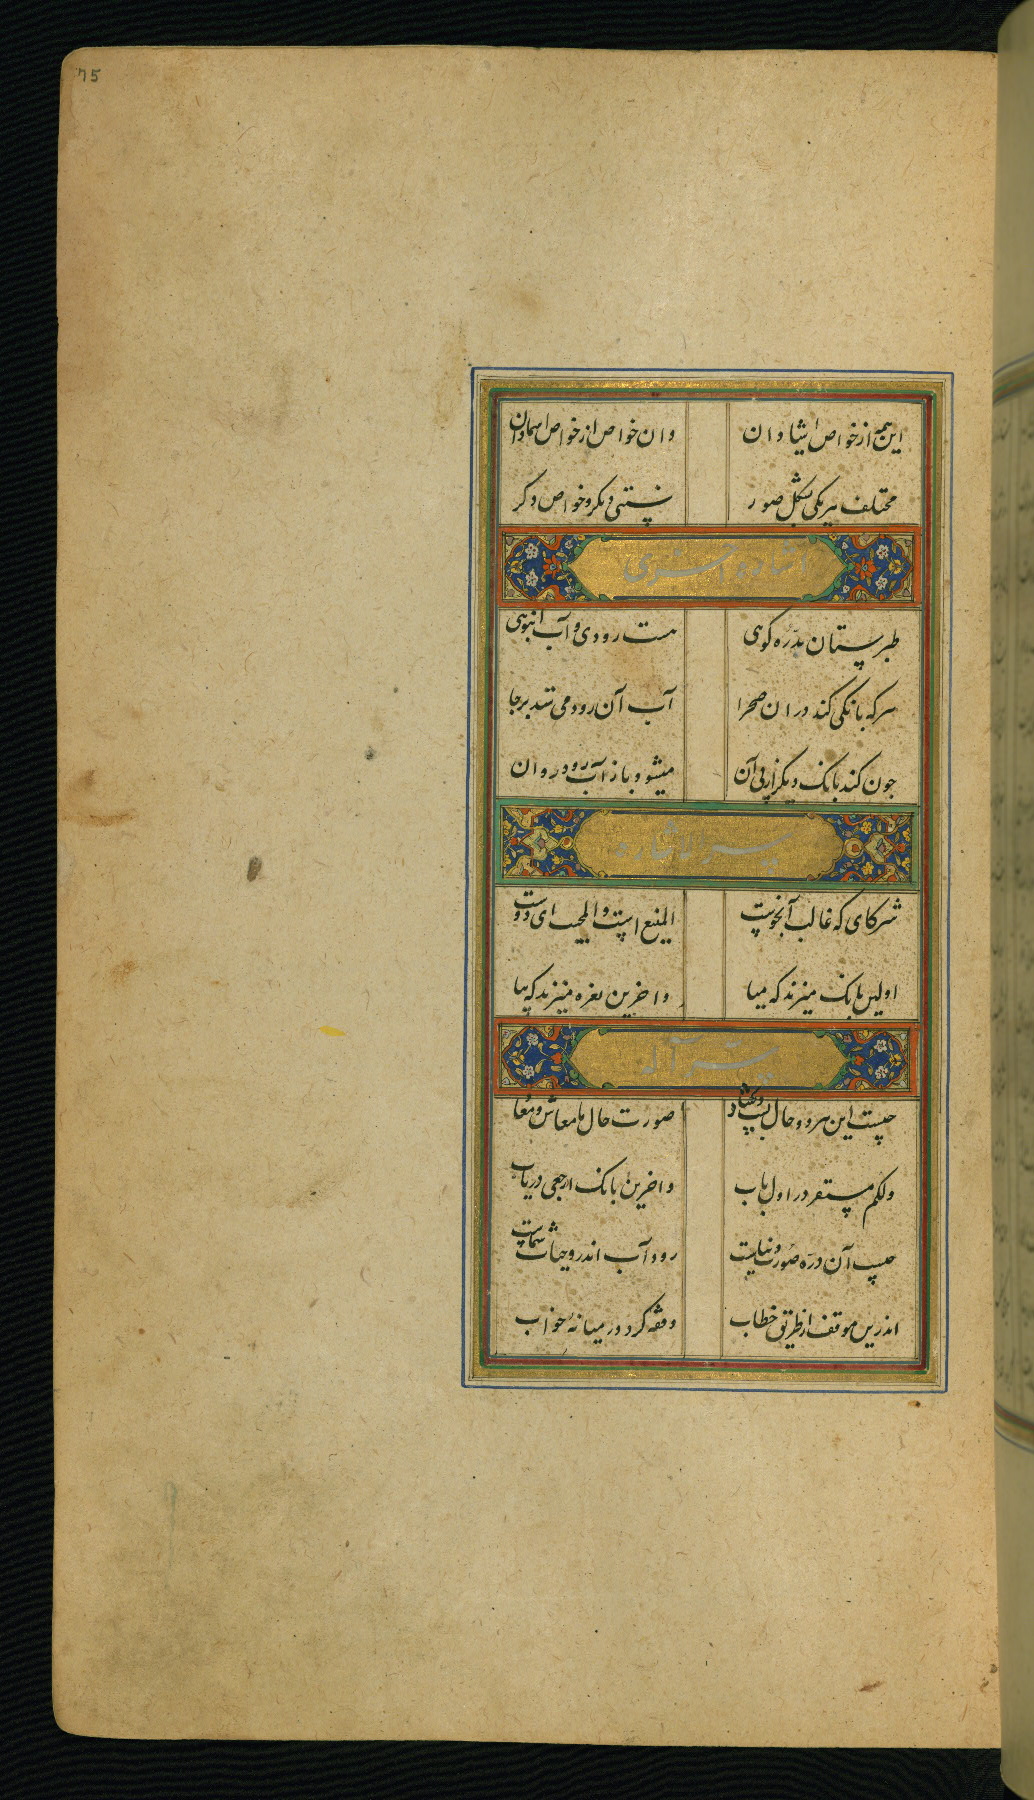 75
این همه از خواص اشیا دان
وان خواص از خواص اسما دان
مختلف هر یکی بشکل صور
نسبتی دیگر و خواص دگر
اشاره اخری
طبرستان بدره کوهی
هست رودی و آب انبوهی
هر که بانگی کند دران صحرا
آب آن رود می ستد برجا
چون کند بانک دیگر از پی آن
میشود باز آب رود روان
سر الاشاره
شرکای که غالب آنخوست
المنیع است والمجیب ای دوست
اولین بانک میزند که میا
واخرین نعره میزند که بیا
سر آله
چیست این هر دو حال بست وکشاد
صورت حال ما معاش و معا
ولکم مستقر در اول باب
واخرین بانک ارجعی دریاب
چیست آن دره صورت دنیاست
رود آب اندرو حیات شماست
اندرین موقف از طریق خطاب
وقفه کرد در میانه خواب